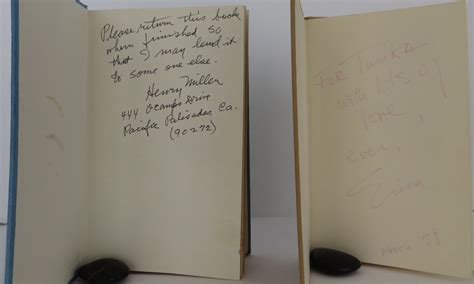 Please return this book
when finished so
that I may lend it
to some one else.
Henry Miller
444 Ocampo Drive
Pacific Palisades, Ca.
(90272)
For
with
love,
ever,
Erica
March '79